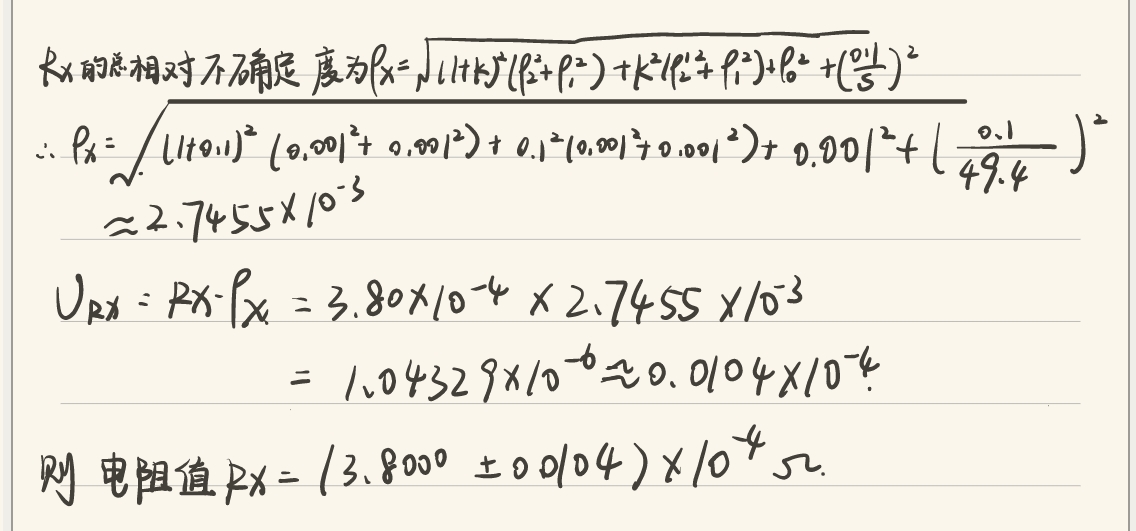 Rx的总相对不确定度为ρx=√(1+k)²(ρ₂²+ρ₁²)+k²(ρ₂'²+ρ₁'²)+ρ₀²+(0.1/S)²
∴ ρx=√(1+0.1)²(0.001²+0.001²)+0.1²(0.001²+0.001²)+0.001²+(0.1/49.4)²
≈2.7455×10⁻³
URx=Rx·ρx=3.80×10⁻⁴×2.7455×10⁻³
=1.04329×10⁻⁶≈0.0104×10⁻⁴.
则电阻值Rx=(3.8000±0.0104)×10⁻⁴Ω.